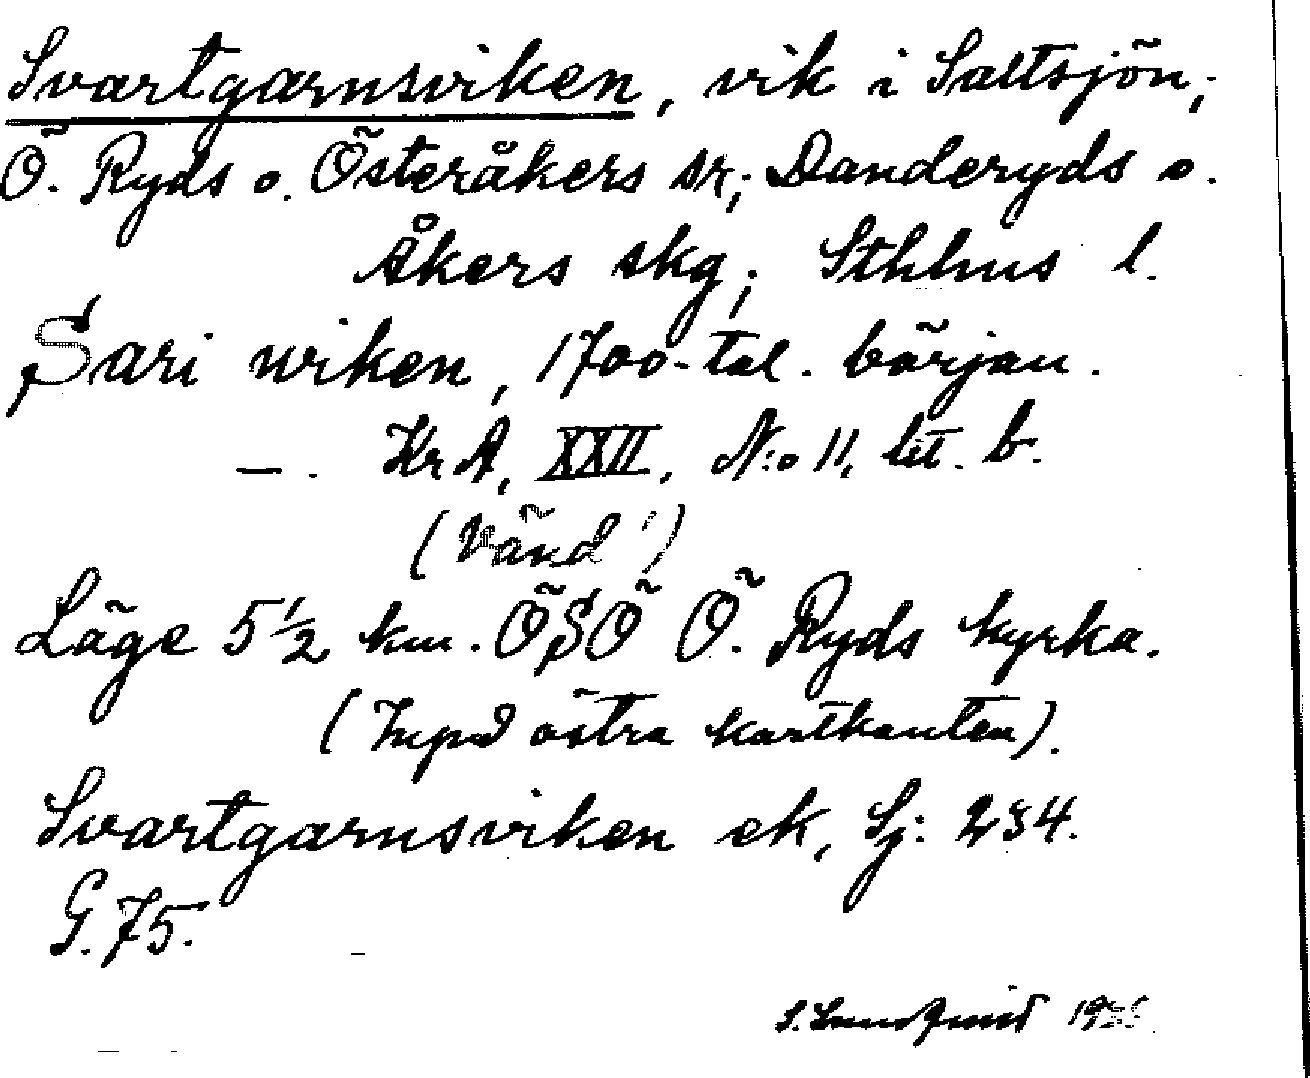 Svartgarnsviken, vik i Saltsjön,
Ö. Ryds o. Österåkers sr; Danderyds o.
Åkers skg; Sthlms l.
Sari wiken, 1700-tal. början.
—. KrA, XXII, N:o 11, lit. b.
(Vänd!)
Läge 5½ km. ÖSÖ Ö. Ryds kyrka.
(Invid östra kartkanten).
Svartgarnsviken ek, Sj: 234.
G. 75.
S. 19